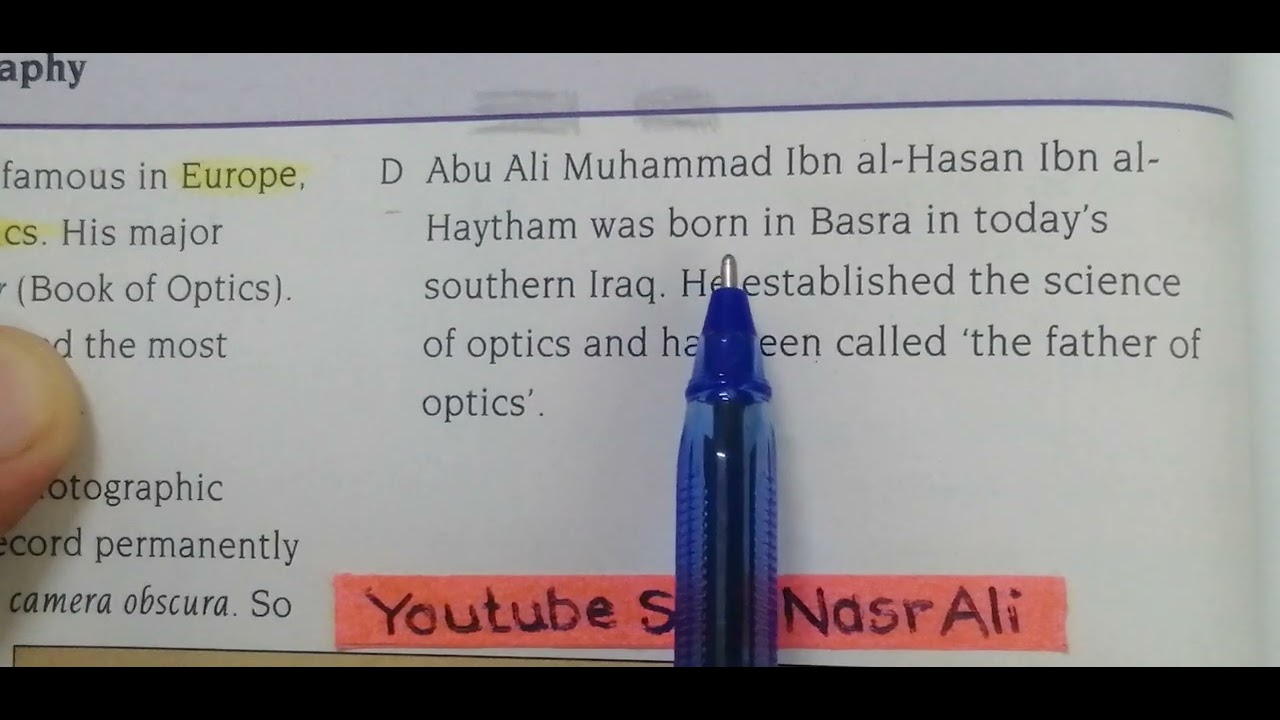 aphy
famous in Europe,
cs. His major
(Book of Optics).
d the most
otographic
ecord permanently
camera obscura. So
D Abu Ali Muhammad Ibn al-Hasan Ibn al-
Haytham was born in Basra in today's
southern Iraq. He established the science
of optics and ha een called 'the father of
optics'.
Youtube S Nasr Ali